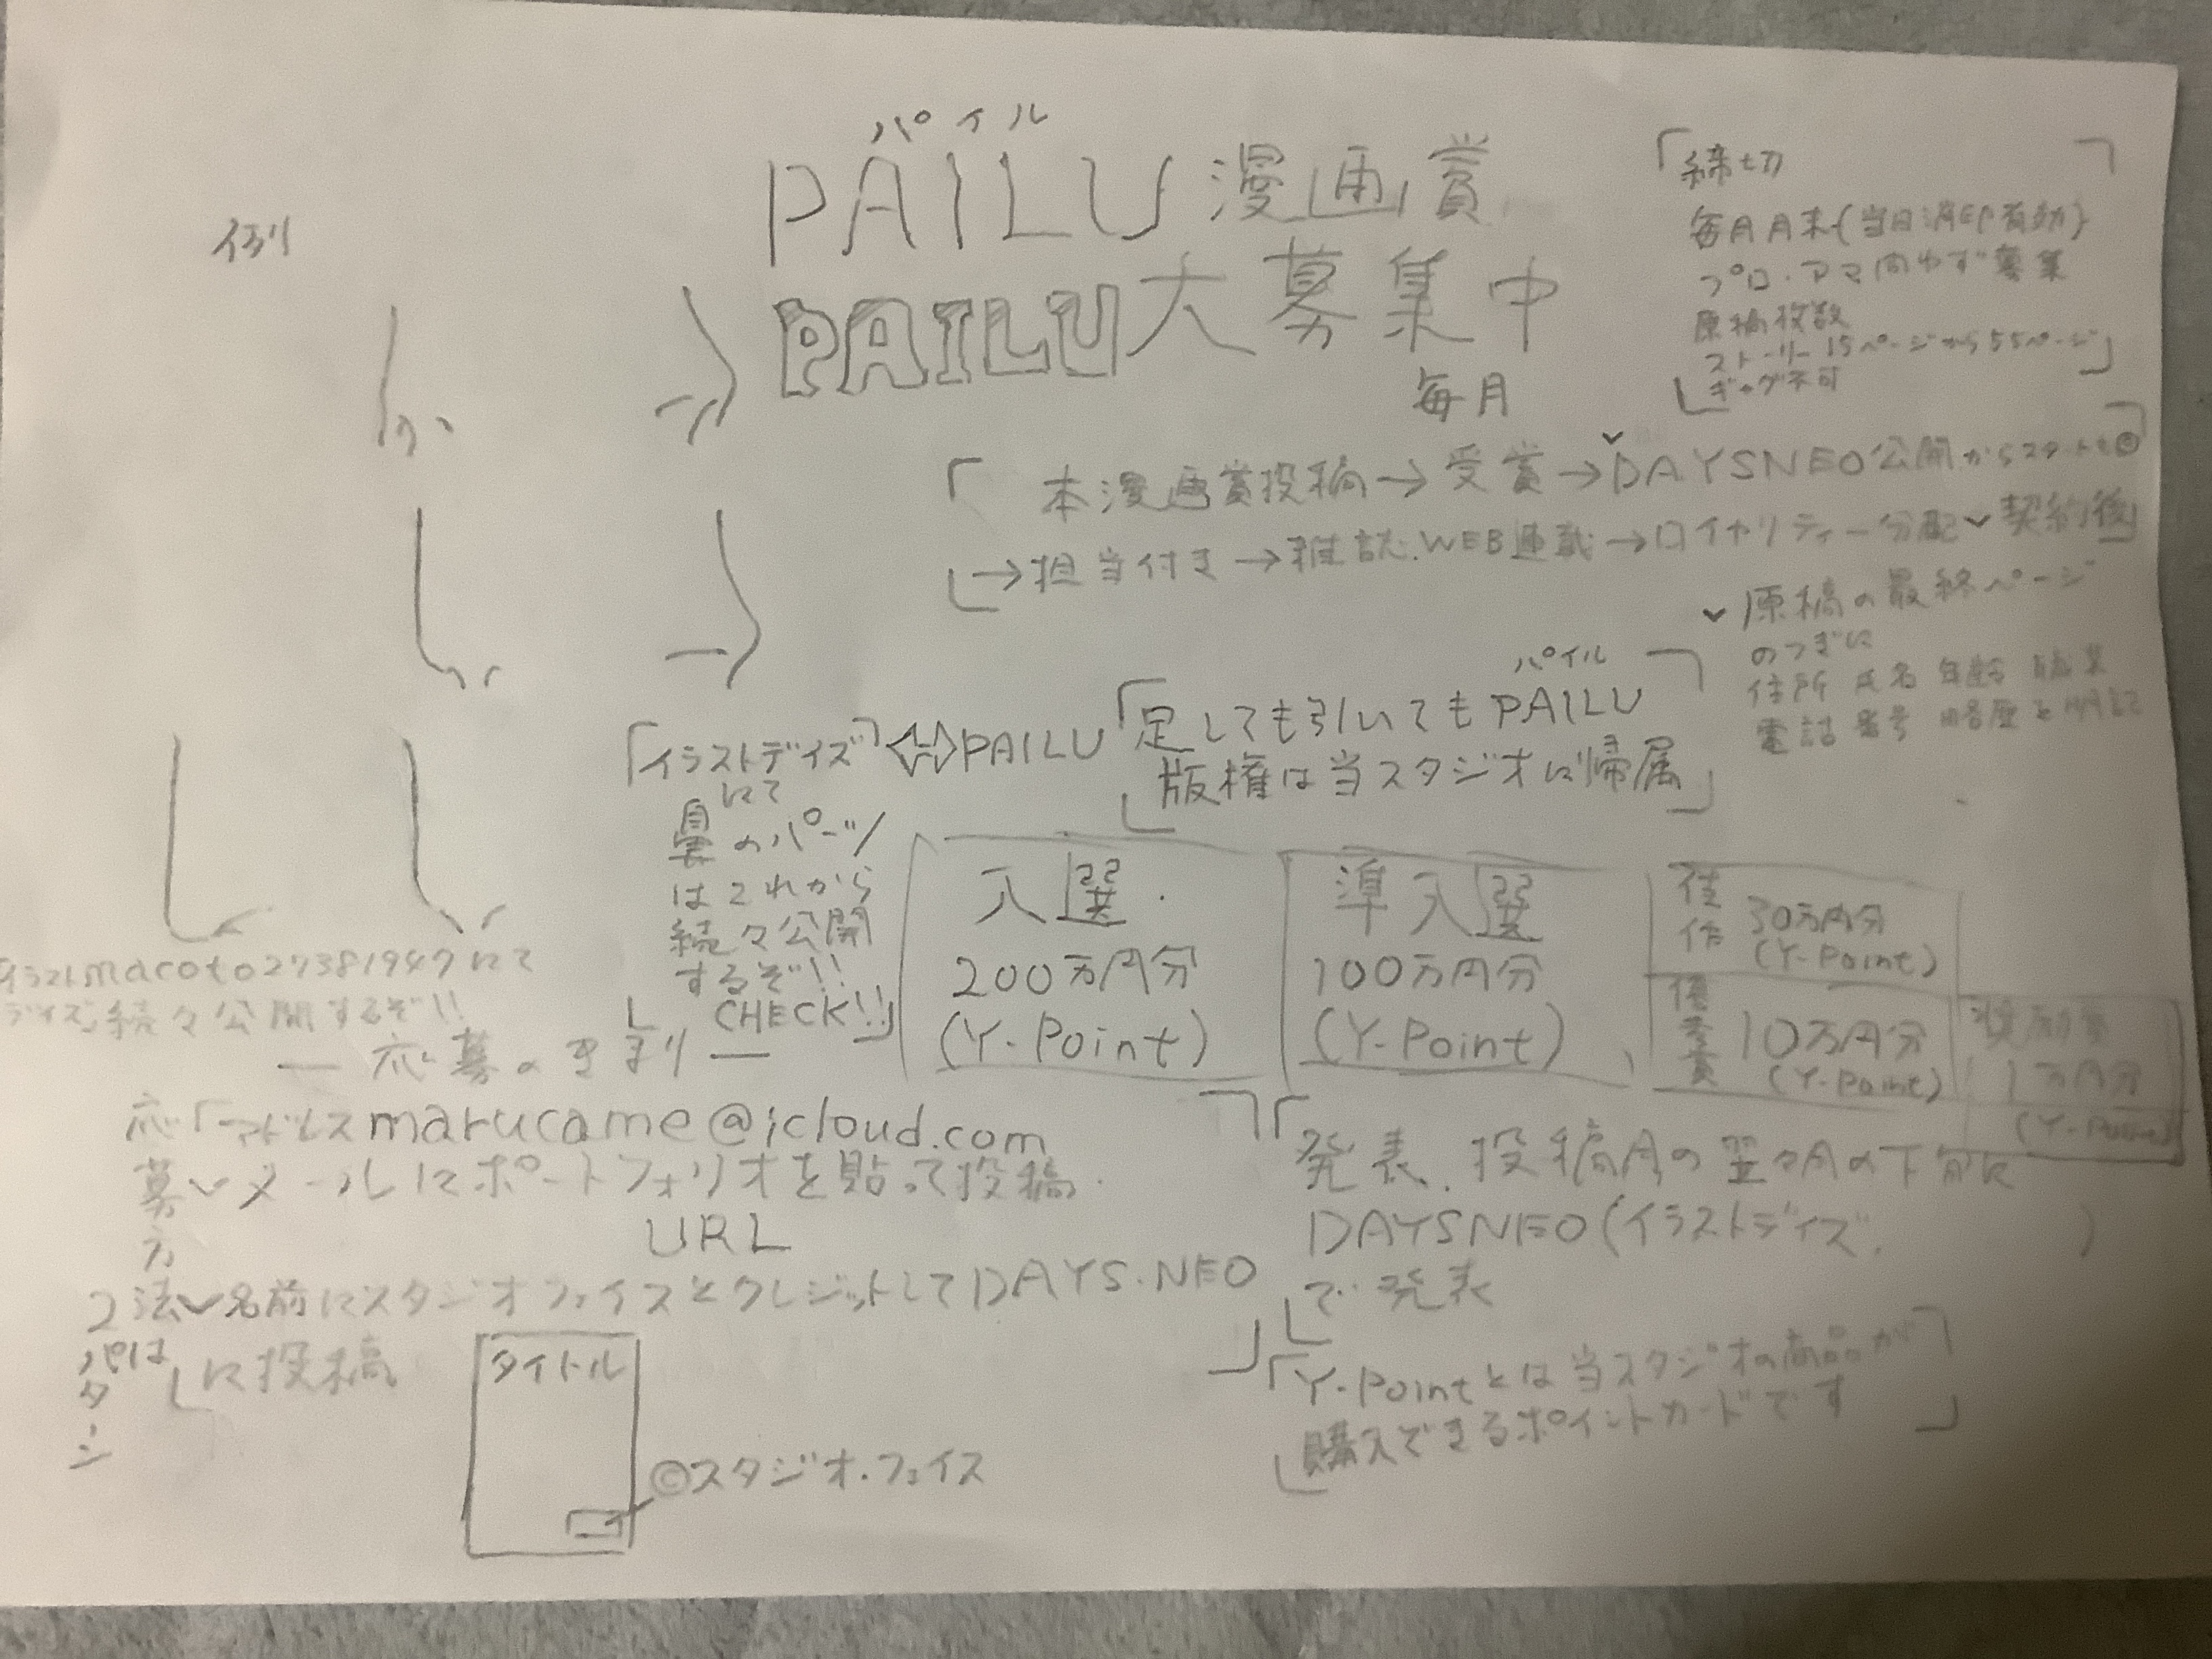 例
パイル
PAILU漫画賞
PAILU大募集中
毎月
「締切
毎月月末{当日消印有効}
プロ・アマ問わず募集
原稿枚数
ストーリー15ページから55ページ
ギャグ不可」
「本漫画賞投稿→受賞→DAYSNEO公開からスタートも
→担当付き→雑誌.WEB連載→ロイヤリティー分配 契約後」
原稿の最終ページ
のつぎに
住所 氏名 年齢 職業
電話番号 略歴と明記
「イラストデイズ」⇔PAILU
にて
鼻のパーツ
はこれから
続々公開
するぞ!!
CHECK!!」
パイル
「足しても引いてもPAILU
版権は当スタジオに帰属」
イラストmacoto27381947にて
デイズ続々公開するぞ!!
入選
200万円分
(Y-Point)
準入選
100万円分
(Y-Point)
佳作 30万円分
(Y-Point)
10万円分
(Y-Point)
奨励賞
1万円分
(Y-Point)
— 応募のきまり —
応募方法は
2パターン
「アドレスmarucame@icloud.com
メールにポートフォリオを貼って投稿
URL
名前にスタジオフェイスとクレジットしてDAYS.NEO
に投稿」
タイトル
©スタジオ.フェイス
「発表.投稿月の翌々月の下旬に
DAYSNEO(イラストデイズ. )
で発表」
「Y-Pointとは当スタジオの商品が
購入できるポイントカードです」